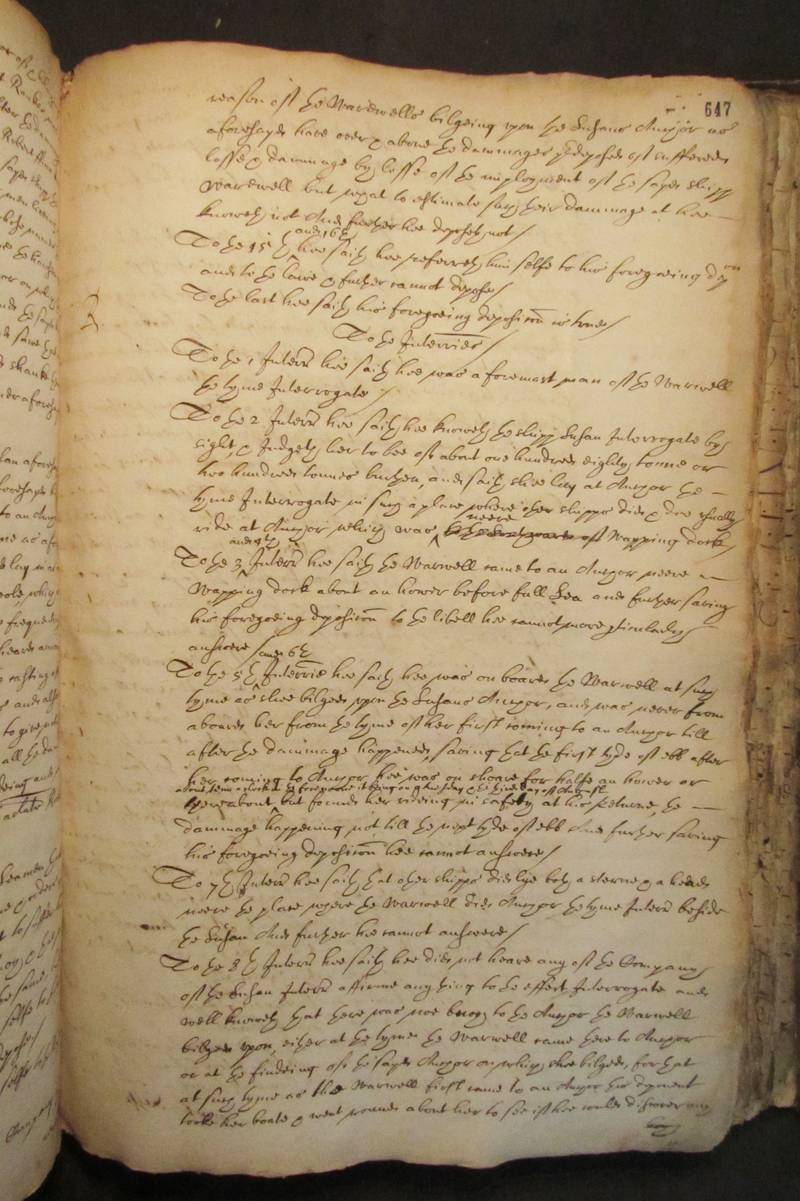 647
reason of the Warewells bilgeing upon the Susans Anchor as
aforesayd have over & above the dammages predeposed of suffered
losse & dammage by losse of the imployment of the sayd shipp
Warewell but what to estimate such their dammage at hee
knoweth not And further hee deposeth not/
and 16th
To the 15th hee saith hee referreth him selfe to his foregoeing depon
and to the lawe & further cannot depose/
To the last hee saith his foregoeing deposition is true/
To the Interries/
To the 1 Interr hee saith hee was a foremast man of the Warwell
the tyme Interrogate
To the 2 Interr hee saith hee knoweth the shipp Susan Interrogate by
sight, & Judgeth her to bee of about one hundred eighty tonne or
two hundred tonnes burthen, and saith shee lay at Anchor the
tyme Interrogate in such a place where other shipps did & doe usually
neere
ride at Anchor which was of Wapping dock
and 4th
To the 3 Interr hee saith the Warwell came to an Anchor neere
Wapping dock about an hower before full Sea and further saving
his foregoeing deposition to the libell hee cannot more perticularly
answere
and 6th
To the 5th Interrie hee saith hee was on board the Warwell at such
tyme as shee bilged upon the Susans Anchor, and was never from
aboard her from the tyme of her first coming to an Anchor till
after the dammage happened, saving that the first tyde of ebb after
her coming to Anchor hee was on shoare for halfe an hower or
thereabout, but found her rideing in safety at his returne, the
dammage happening not till the next tyde of ebb And further saving
his foregoeing deposition hee cannot answere/
To the 7th Interr hee saith that other shipps did lye both a sterne & a head
neere the place where the Warwell did Anchor the tyme Interr beside
the Susan And further hee cannot answere/
To the 8th Interr hee saith hee did not heare any of the Company
of the Susan Interr affirme any thing to the effect Interrogate and
well knoweth that there was noe buoy to the Anchor the Warwell
bilged upon, either at the tyme the Warwell came there to Anchor
or at the findeing of the sayd Anchor on which shee bilged, for that
at such tyme as the Warwell first came to an Anchor this deponent
tooke her boate & went round about her to see if hee could discover any
buoy